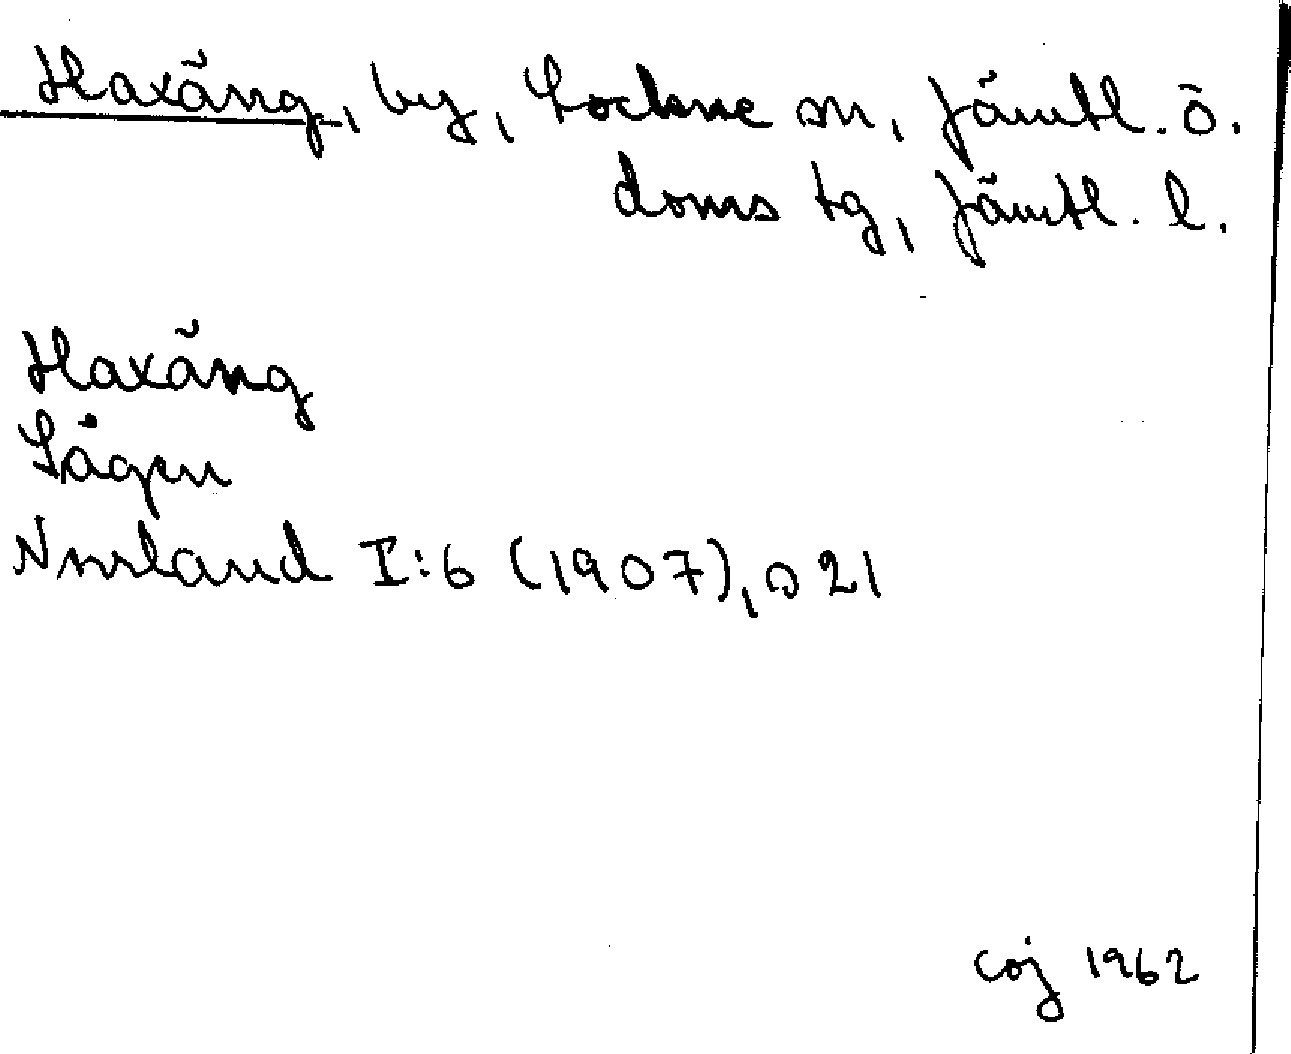 Haxäng, by, Lockne sn, Jämtl. ö.
doms tg, Jämtl. l.
Haxäng
Lågen
Norrland I:6 (1907), s 21
coj 1962